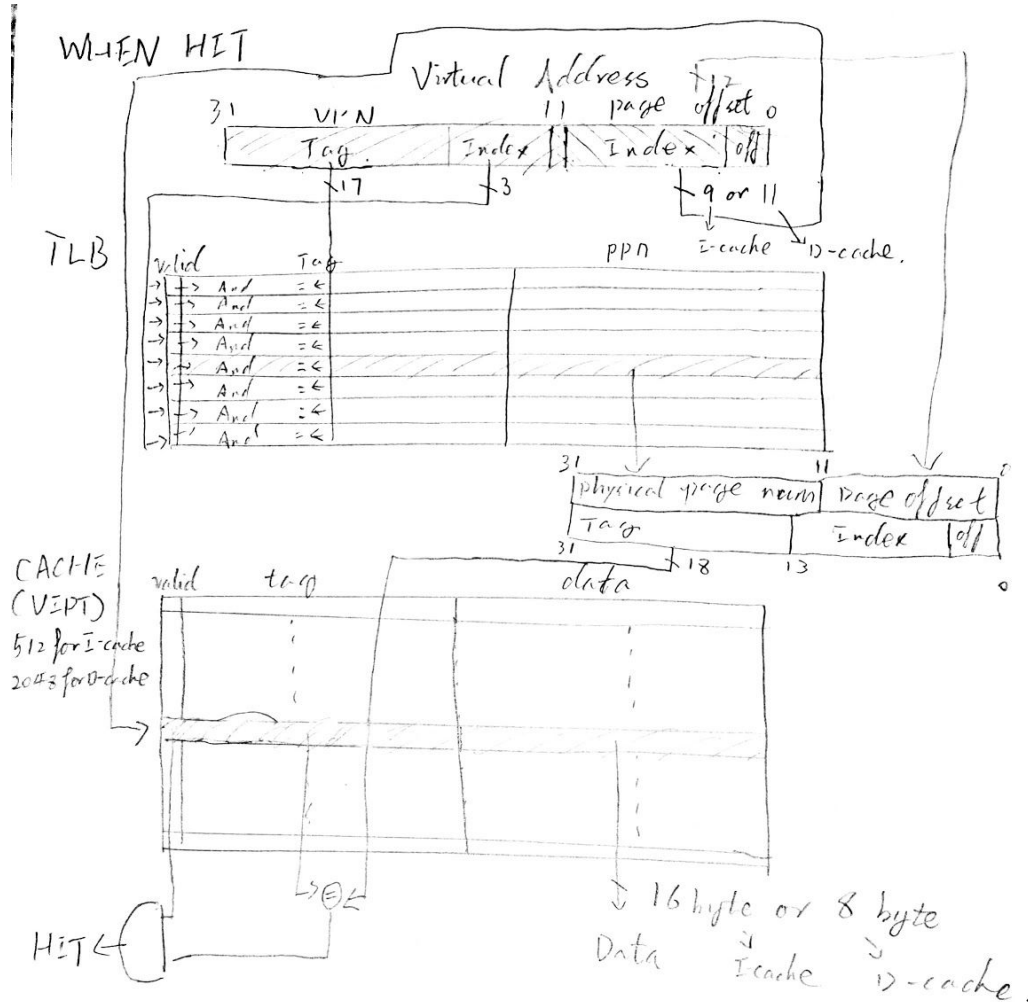 WHEN HIT
Virtual Address 12
31 VPN 11 page offset 0
Tag. Index Index off
17 3 9 or 11
I-cache D-cache.
TLB
valid Tag ppn
And = 
And =
And =
And =
And =
And =
And =
And =
31 11 0
physical page num page offset
Tag Index off
31 18 13 0
CACHE
(VIPT)
512 for I-cache
2048 for D-cache
valid tag data
=
16 byte or 8 byte
HIT
Data I-cache D-cache.